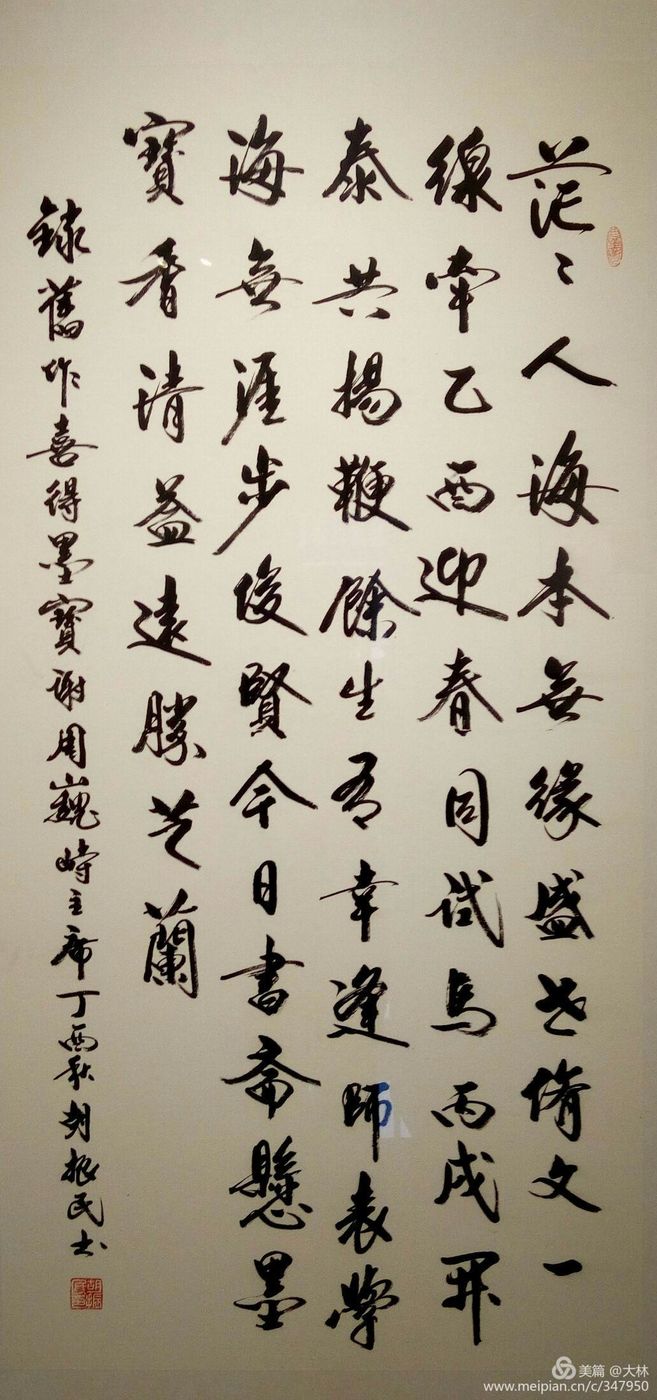 茫〻人海本無緣盛世脩文一
線牽乙酉迎春同試馬丙戌開
泰共揚鞭餘生有幸逢師表學
海無涯步俊賢今日書斋懸墨
寶香清益遠勝芝蘭
錄舊作喜得墨寶谢周巍峙主席丁酉秋胡振民书
美篇 @大林
www.meipian.cn/c/347950